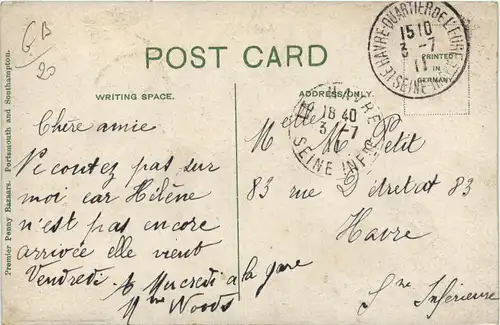 GB
20
POST CARD
WRITING SPACE.
ADDRESS ONLY.
PRINTED
IN
GERMANY
Premier Penny Bazaars. Portsmouth and Southampton.
LE HAVRE-QUARTIER DE L'EURE
1510
3 -7
11
SEINE INFRE
HAVRE
18 40
3 -7
SEINE INFRE
Chère amie
Ne contez pas sur
moi car Hélène
n'est pas encore
arrivée elle vient
Vendredi
à Mercredi a la gare
Mme Woods
Melle M Petit
83 rue d'etretat 83
Havre
Sne Inférieure